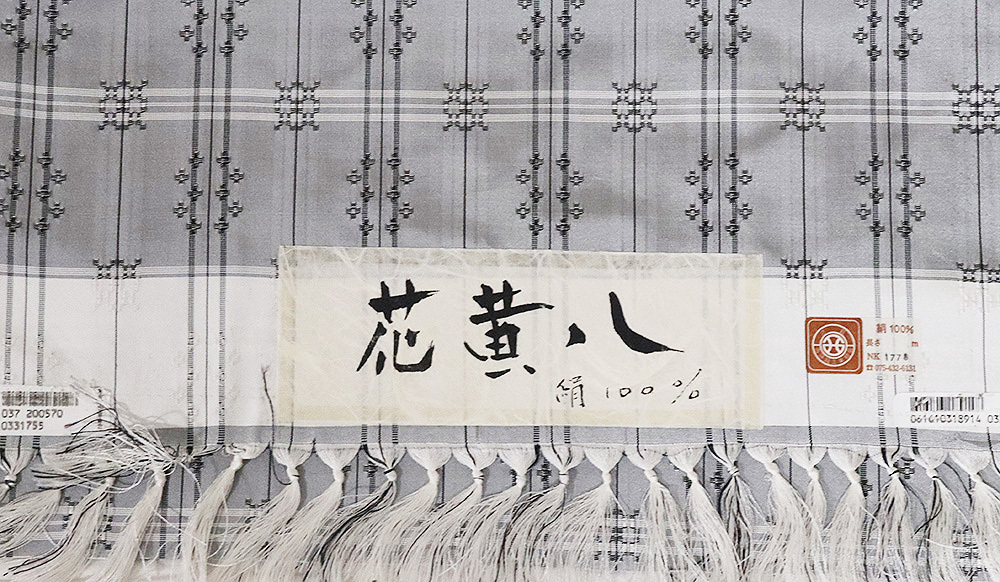 花黄八
絹100%
絹 100%
長さ m
NK 1778
☎075-432-6131
037 200570
0331755
061610318914 03